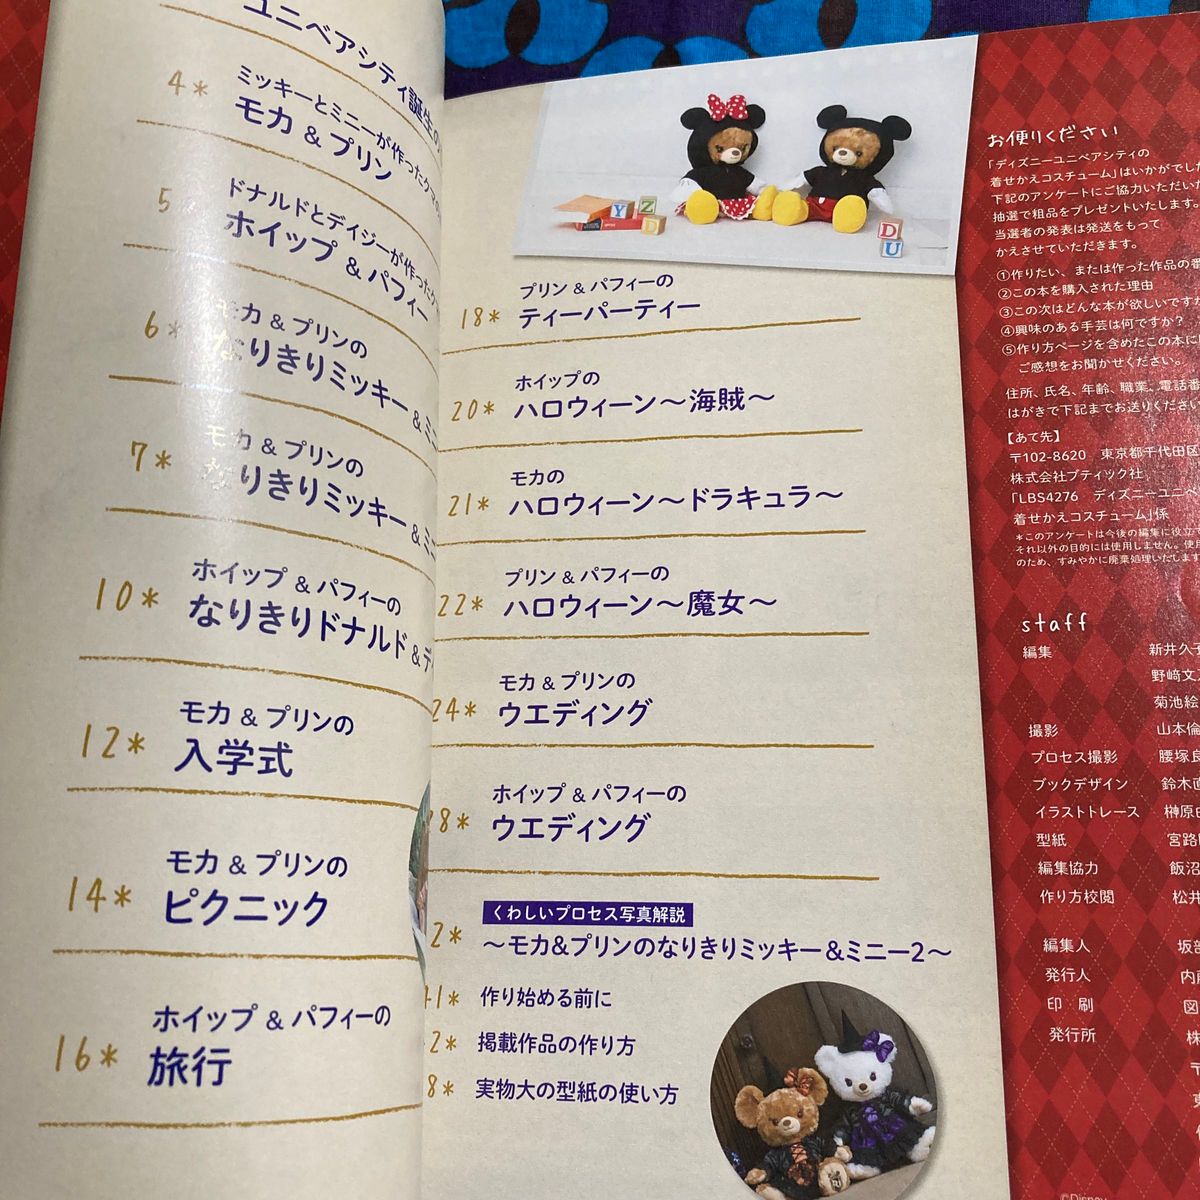 ユニベアシティ誕生の
4* ミッキーとミニーが作ったクマの
モカ & プリン
5 ドナルドとデイジーが作った
ホイップ & パフィー
6* モカ & プリンの
なりきりミッキー & ミニ
7* モカ & プリンの
なりきりミッキー & ミニ
10* ホイップ & パフィーの
なりきりドナルド & デ
12* モカ & プリンの
入学式
14* モカ & プリンの
ピクニック
16* ホイップ & パフィーの
旅行
Y Z D
D U
18* プリン & パフィーの
ティーパーティー
20* ホイップの
ハロウィーン〜海賊〜
21* モカの
ハロウィーン〜ドラキュラ〜
22* プリン & パフィーの
ハロウィーン〜魔女〜
24* モカ & プリンの
ウエディング
8* ホイップ & パフィーの
ウエディング
くわしいプロセス写真解説
2* 〜モカ&プリンのなりきりミッキー&ミニー2〜
1* 作り始める前に
2* 掲載作品の作り方
8* 実物大の型紙の使い方
お便りください
「ディズニーユニベアシティの
着せかえコスチューム」はいかがでした
下記のアンケートにご協力いただいた
抽選で粗品をプレゼントいたします。
当選者の発表は発送をもって
かえさせていただきます。
①作りたい、または作った作品の番
②この本を購入された理由
③この次はどんな本が欲しいですか
④興味のある手芸は何ですか?
⑤作り方ページを含めたこの本に
ご感想をお聞かせください。
住所、氏名、年齢、職業、電話番
はがきで下記までお送りください
【あて先】
〒102-8620 東京都千代田区
株式会社ブティック社
「LBS4276 ディズニーユニベ
着せかえコスチューム」係
*このアンケートは今後の編集に役立
それ以外の目的には使用しません。使用
のため、すみやかに廃棄処理いたします
staff
編集 新井久子
野﨑文
菊池絵
撮影 山本倫
プロセス撮影 腰塚良
ブックデザイン 鈴木直
イラストトレース 榊原由
型紙 宮路
編集協力 飯沼
作り方校閲 松井
編集人 坂部
発行人 内藤
印 刷 図
発行所 株
〒
東
©Disney